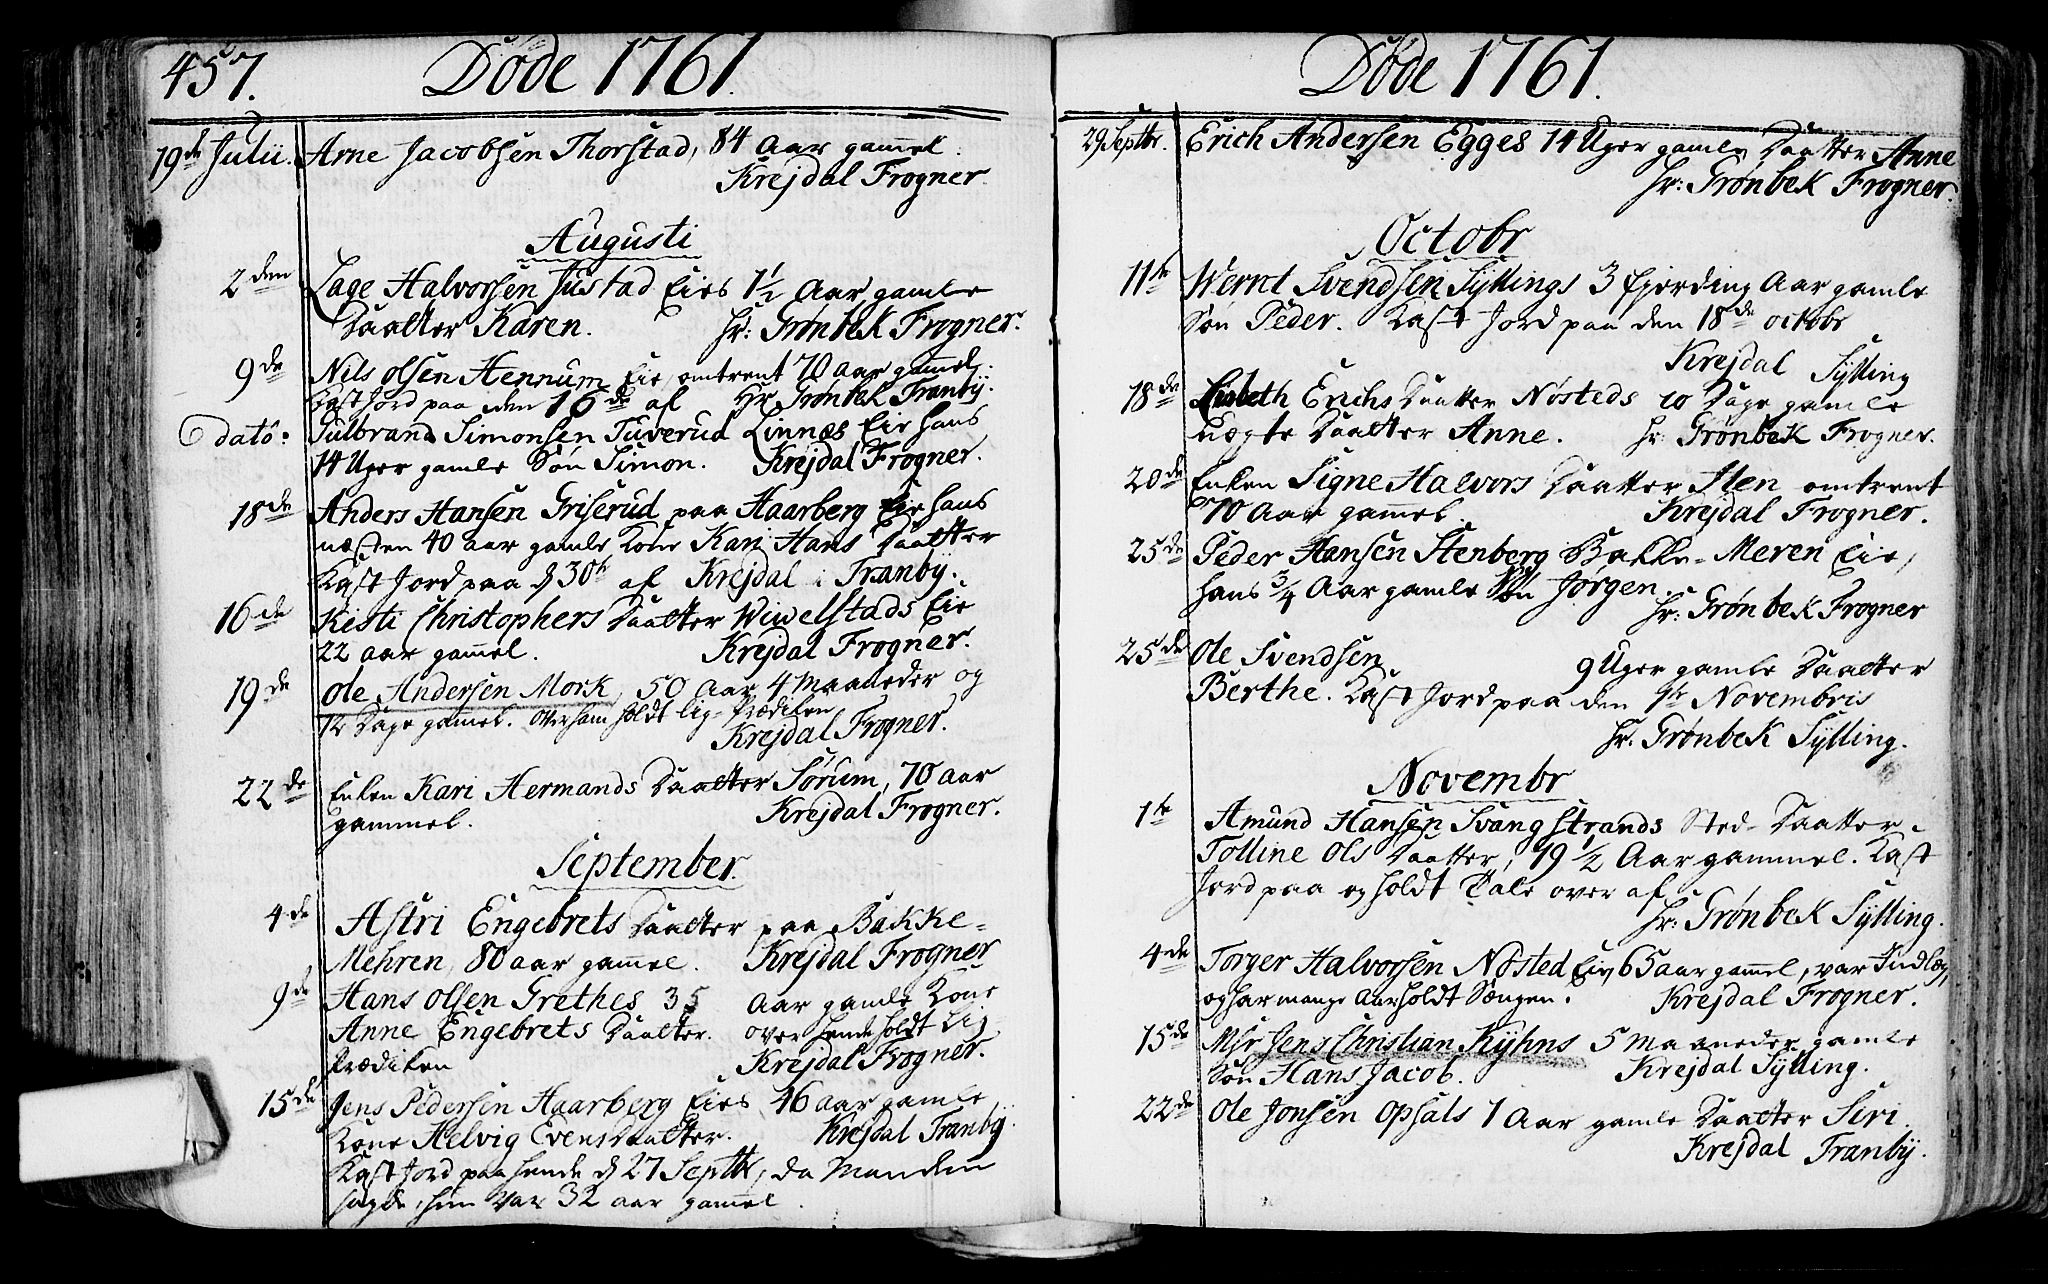 457. Døde 1761.
19de Julii. Arne Jacobsen Thorstad, 84 Aar gammel.
Krejdal Frogner.
Augusti
2den Lage Halvorsen Justad Eies 1 1/2 Aar gamle
Daatter Karen. Hr: Grønbek Frogner.
9de Nils Olsen Hennum Eie, omtrent 70 aar gammel.
Kast Jord paa den 16de af Hr Grønbek Tranbÿ.
dato: Gulbrand Simonsen Tuverud Linnæs Eie hans
14 Uger gamle Søn Simon. Krejdal Frogner.
18de Anders Hansen Griserud paa Haarberg Eie hans
næsten 40 aar gamle Kone Kari Hans Daatter
Kast Jord paa d 30te af Krejdal i Tranbÿ.
16de Kisti Christophers Daatter Wiwelstads Eie
22 aar gammel. Krejdal Frogner.
19de Ole Andersen Mork, 50 Aar 4 Maaneder og
12 Dage gammel. Over ham holdt Lig-Prædiken
Krejdal Frogner.
22de Enken Kari Hermands Daatter Sørum, 70 aar
gammel. Krejdal Frogner.
September.
4de Astri Engebrets Daatter paa Bakke-
Mehren, 80 aar gammel. Krejdal Frogner
9de Hans Olsen Grethes 35 Aar gamle Kone
Anne Engebrets Daatter. over hende holdt Lig-
Prædiken Krejdal Frogner.
15de Jens Pedersen Haarberg Eies 46 aar gamle
Kone Helvig Evensdaatter. Krejdal Tranbÿ.
Kast Jord paa hende d 27 Septbr, da Manden
sagde, hun var 32 aar gammel.
Døde 1761.
29 Septbr. Erich Andersen Egges 14 Uger gamle Daatter Anne
Hr: Grønbek Frogner.
Octobr
11te Wernt Svendsen Sÿllings 3 fjerding Aar gamle
Søn Peder. Kast Jord paa den 18de octobr
Krejdal Sÿlling
18de Lisbeth Erichs Daatter Nøsteds 10 Dage gamle
uægte Daatter Anne. Hr: Grønbek Frogner.
20de Enken Signe Halvors Daatter Sten omtrent
70 Aar gammel Krejdal Frogner.
25de Peder Hansen Stenberg Bakke-Meren Eie,
hans 3/4 Aar gamle Søn Jørgen
Hr: Grønbek Frogner
25de Ole Svendsen 9 Uger gamle Daatter
Berthe. Kast Jord paa den 1te Novembris
Hr. Grønbek Sÿlling.
Novembr
1te Amund Hansen Svangstrands Sted-Daatter
Tolline Ols Daatter, 19 1/2 Aar gammel. Kast
Jord paa og holdt Tale over af
Hr: Grønbek Sÿlling.
4de Torger Halvorsen Nøsted Eie, 65 aar gammel, var Indlæg,
og har mange Aar holdt Sængen. Krejdal Frogner.
15de Msr Jens Christian Kÿhns 5 Maaneder gamle
Søn Hans Jacob. Krejdal Sÿlling.
22de Ole Jonsen Opsals 1 Aar gamle Daatter Siri.
Krejdal Tranbÿ.